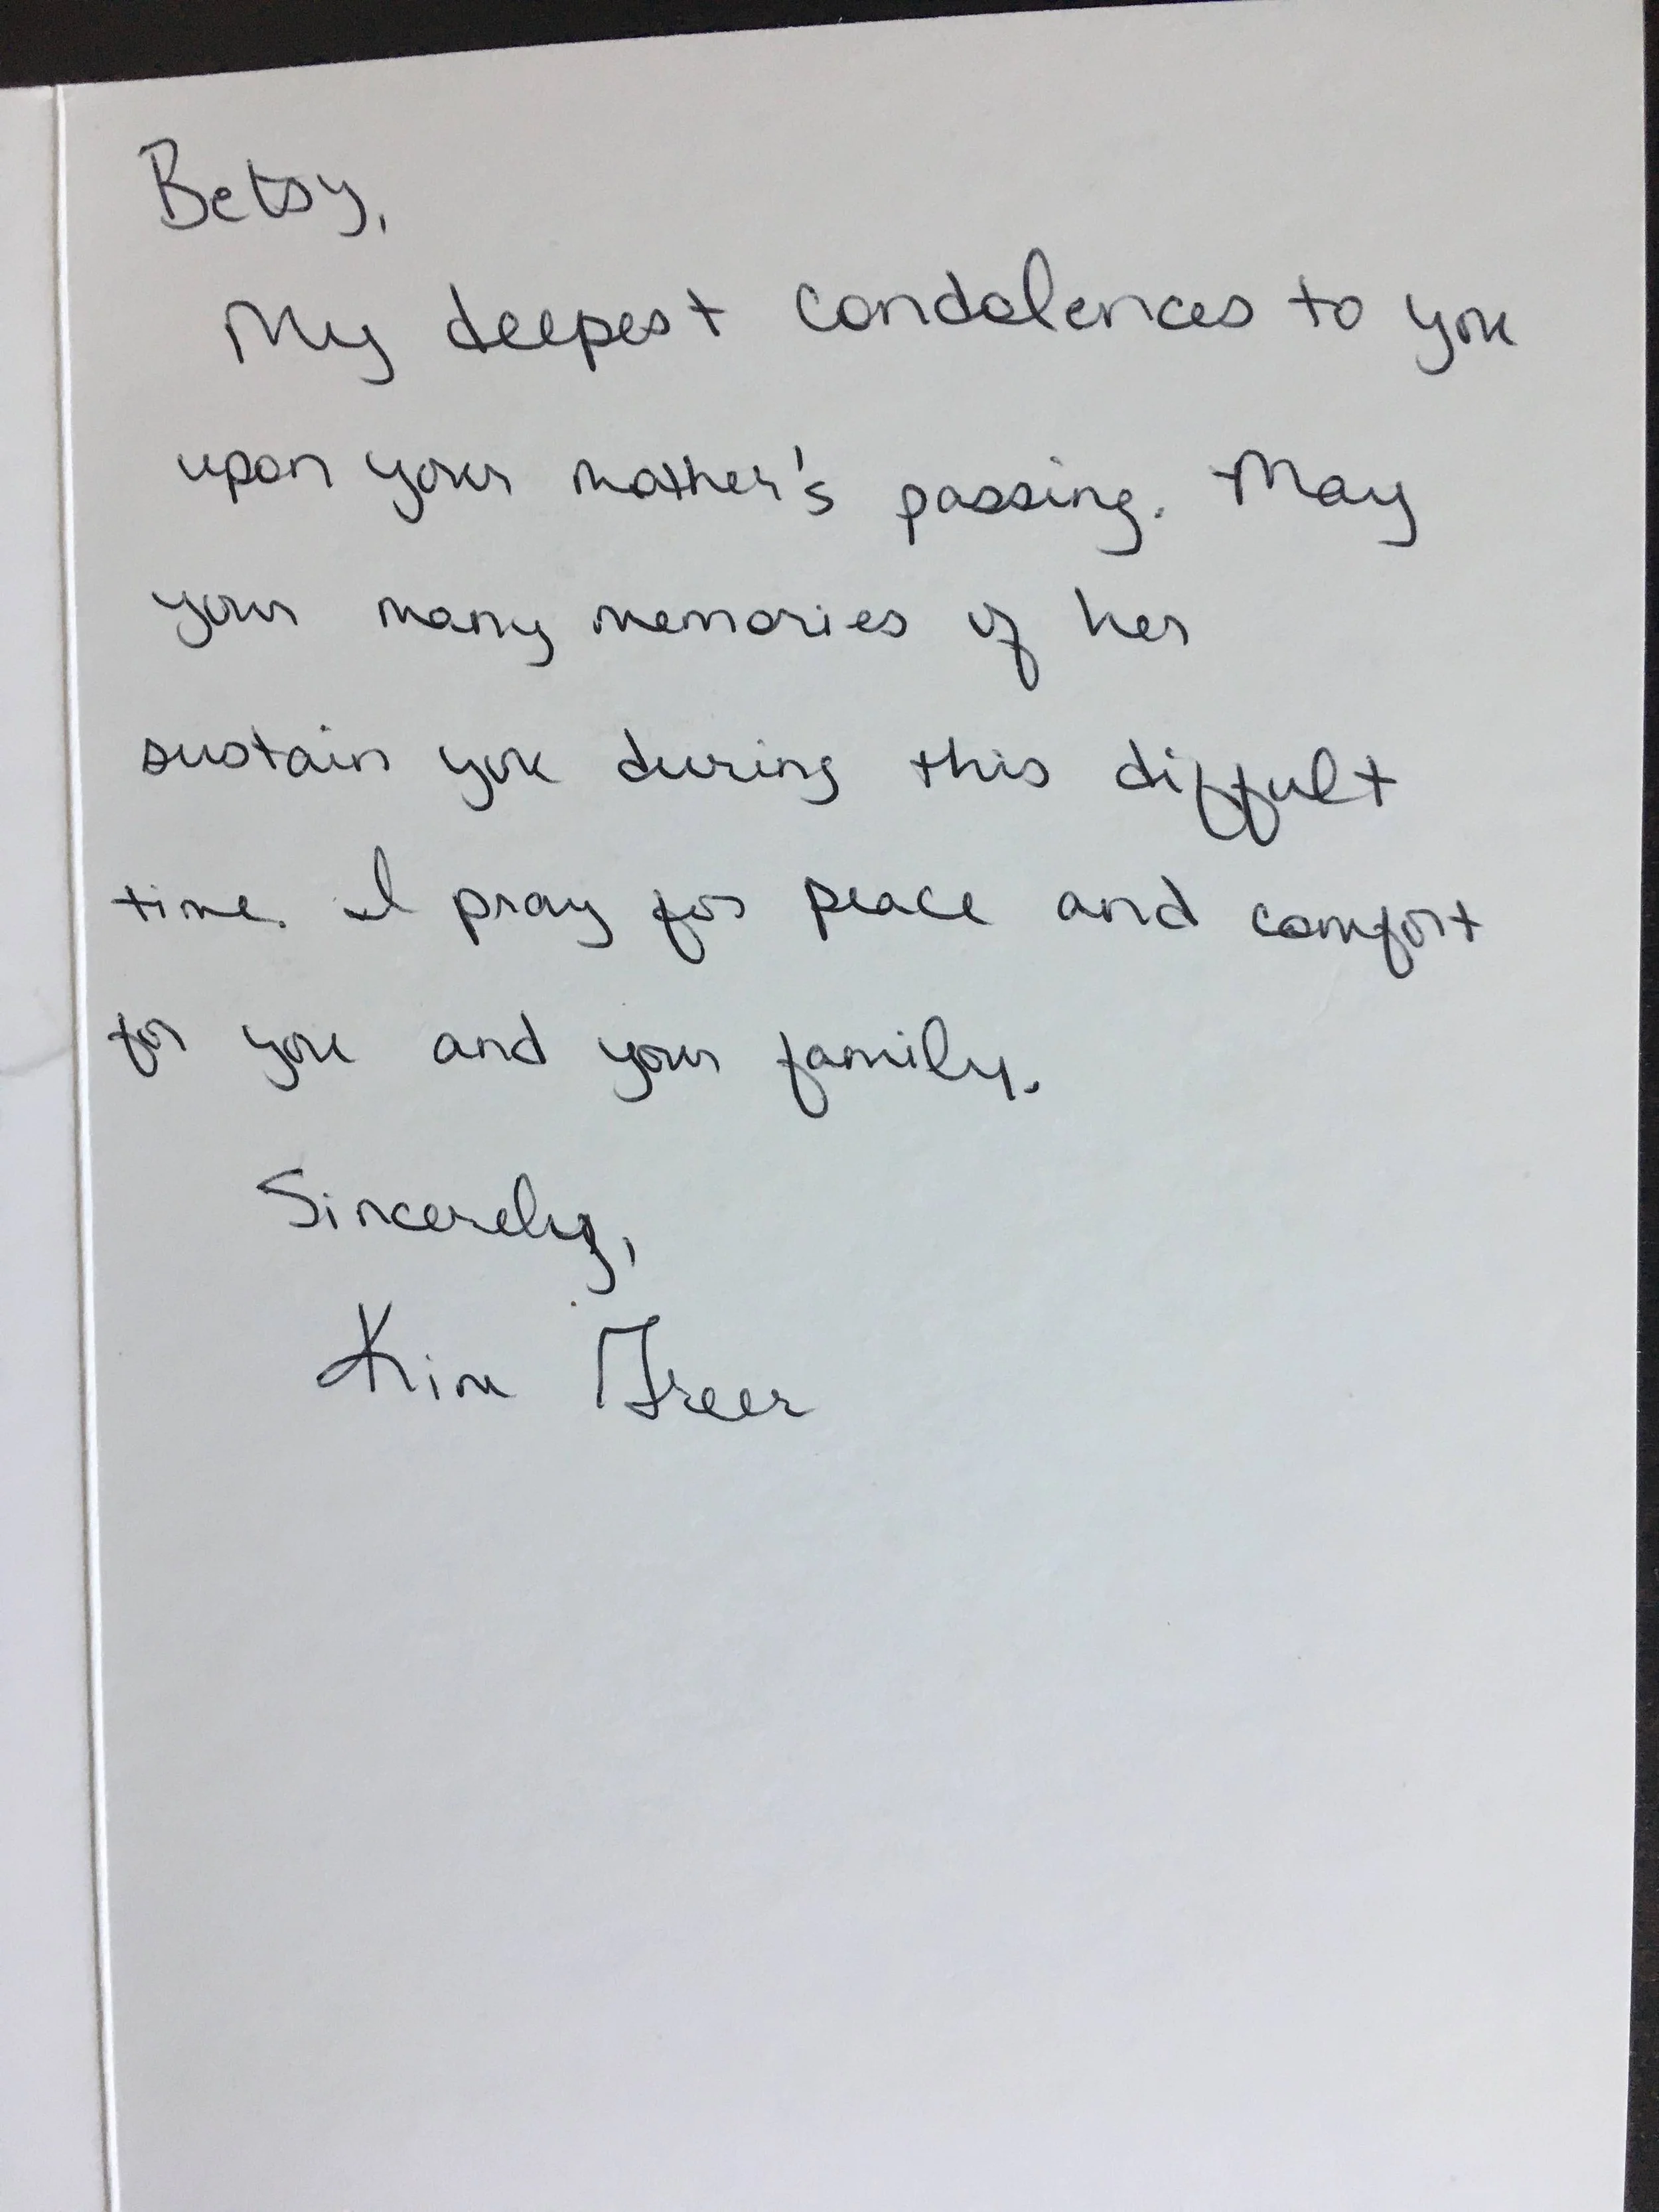 Betsy,
My deepest condolences to you
upon your mother's passing. May
your many memories of her
sustain you during this diffult
time. I pray for peace and comfort
for you and your family.
Sincerely,
Kim Freer